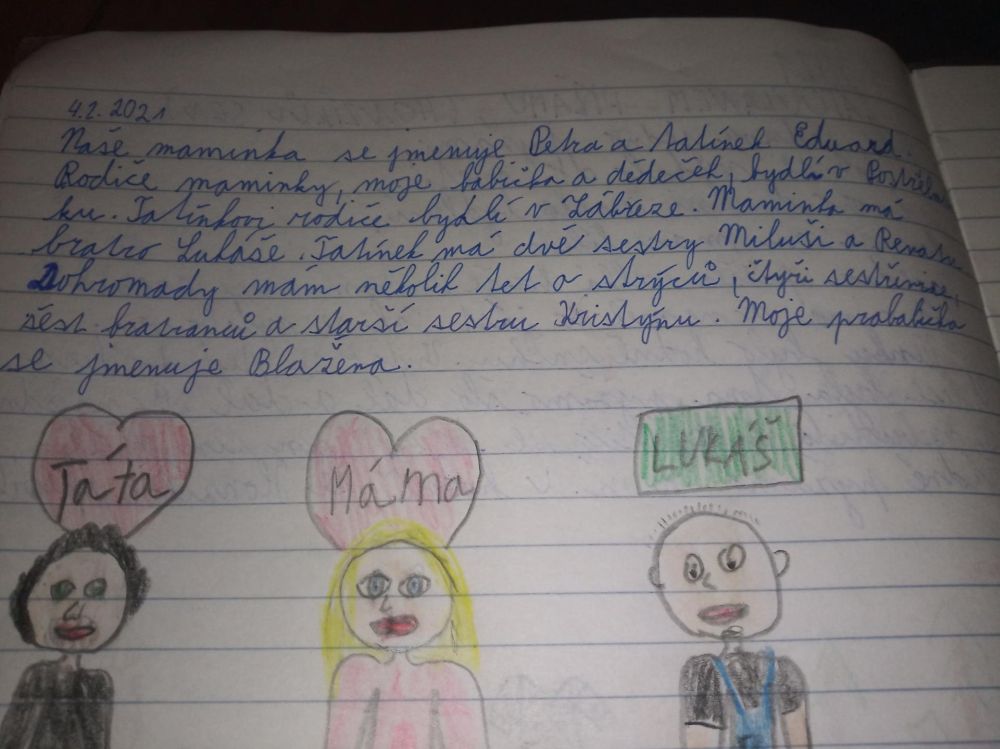 4.2. 2021
Naše maminka se jmenuje Petra a tatínek Eduard.
Rodiče maminky, moje babička a dědeček, bydlí v Postřelm
ku. Tatínkovi rodiče bydlí v Zábřeze. Maminka má
bratra Lukáše. Tatínek má dvě sestry Miluši a Renatu
Dohromady mám několik tet a strýců, čtyři sestřenice,
šest bratranců a starší sestru Kristýnu. Moje prababička
se jmenuje Blažena.
Táta Máma LUKÁŠ